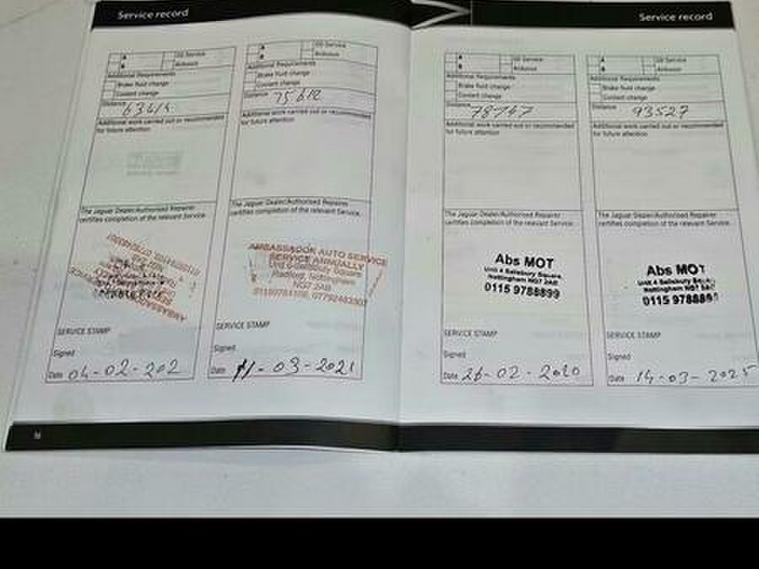 Service record
Service record
A
Oil Service
B
Airdustor
Additional Requirements
Brake fluid change
Coolant change
Distance
Additional work carried out or recommended
for future attention
The Jaguar Dealer/Authorised Repairer
certifies completion of the relevant Service.
SERVICE STAMP
Signed
Date 04-02-202
A
Oil Service
B
Airdustor
Additional Requirements
Brake fluid change
Coolant change
Distance 75612
Additional work carried out or recommended
for future attention
The Jaguar Dealer/Authorised Repairer
certifies completion of the relevant Service.
AMBASSADOR AUTO SERVICE
SERVICE ANNUALLY
Unit 6 Salisbury Square
Radford, Nottingham
NG7 2AB
SERVICE STAMP
Signed
Date 11-03-2021
A
Oil Service
B
Airdustor
Additional Requirements
Brake fluid change
Coolant change
Distance 78747
Additional work carried out or recommended
for future attention
The Jaguar Dealer/Authorised Repairer
certifies completion of the relevant Service.
Abs MOT
Unit 4 Salisbury Square
Nottingham NG7 2AB
0115 9788899
SERVICE STAMP
Signed
Date 26-02-2020
A
Oil Service
B
Airdustor
Additional Requirements
Brake fluid change
Coolant change
Distance 93527
Additional work carried out or recommended
for future attention
The Jaguar Dealer/Authorised Repairer
certifies completion of the relevant Service.
Abs MOT
Unit 4 Salisbury Square
Nottingham NG7 2AB
0115 9788899
SERVICE STAMP
Signed
Date 14-03-2025